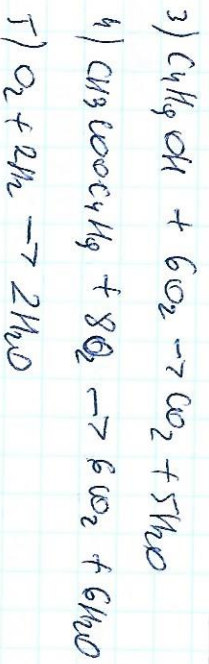 3) C4H9OH + 6O2 → CO2 + 5H2O
4) CH3COOC4H9 + 8O2 → 6CO2 + 6H2O
5) O2 + 2H2 → 2H2O